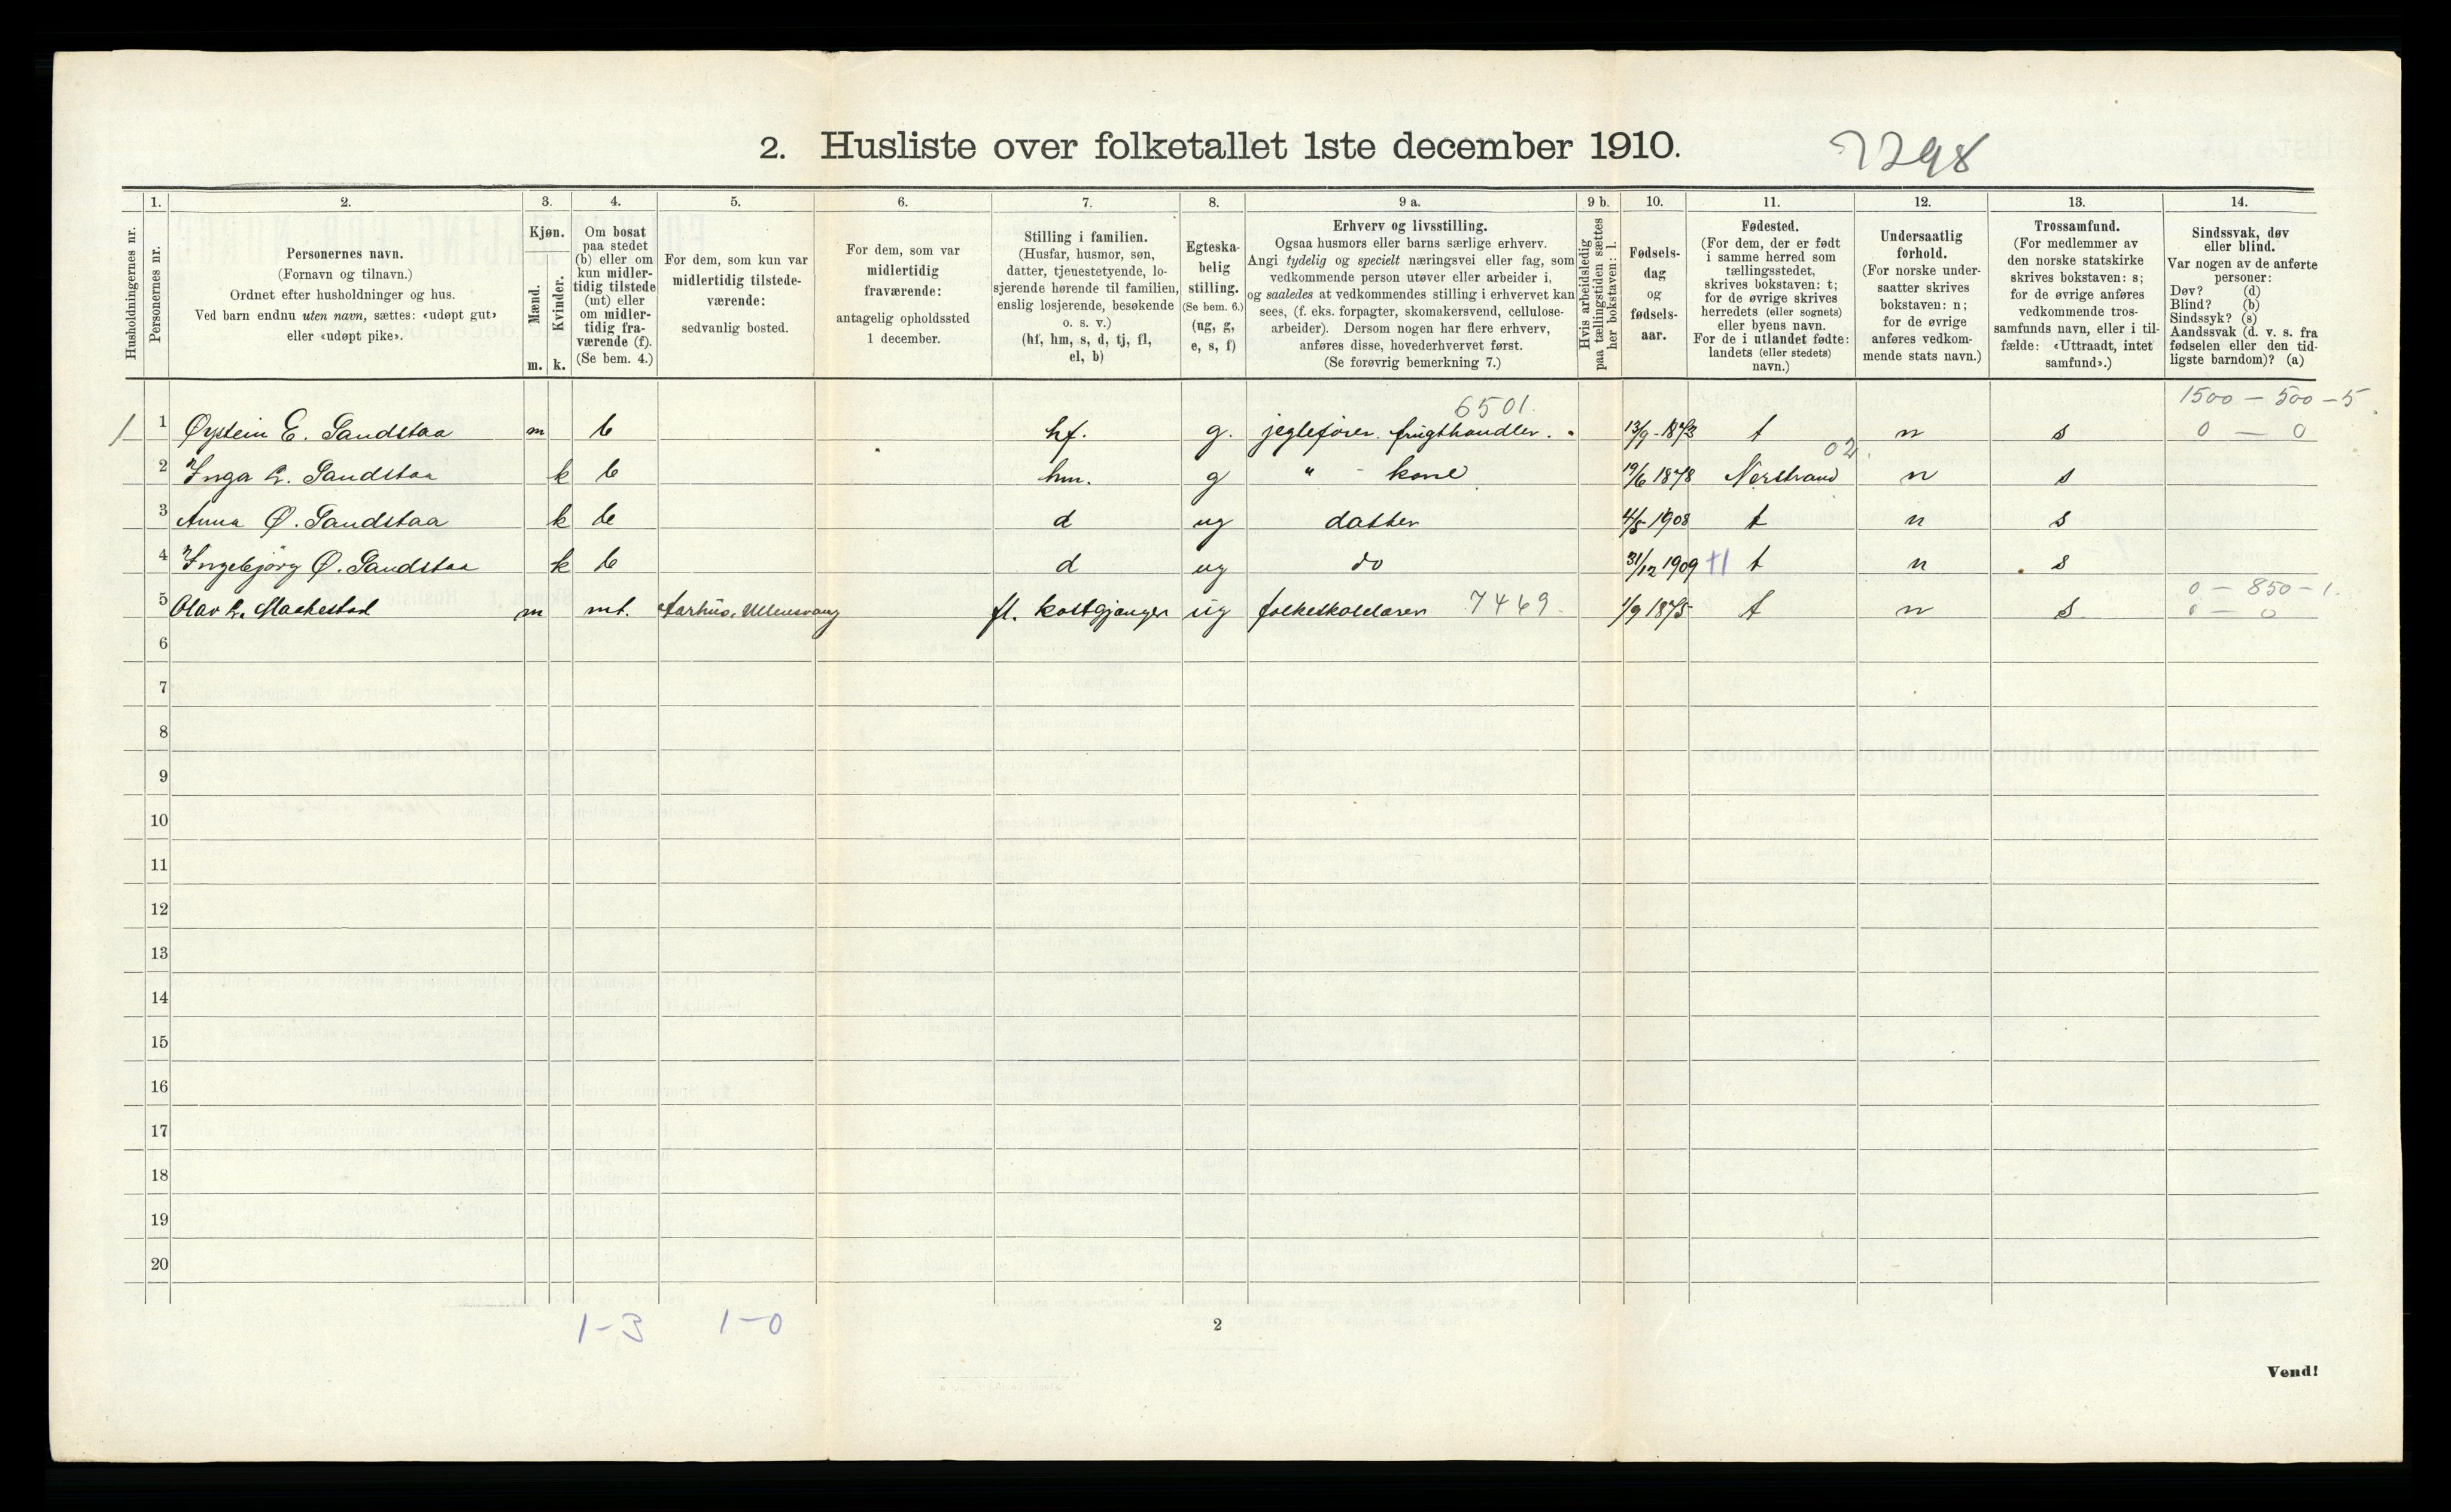 2. Husliste over folketallet 1ste december 1910.
7298
1. 2. 3. 4. 5. 6. 7. 8. 9 a. 9 b. 10. 11. 12. 13. 14.
Husholdningernes nr.
Personernes nr.
Personernes navn.
(Fornavn og tilnavn.)
Ordnet efter husholdninger og hus.
Ved barn endnu uten navn, sættes: «udøpt gut»
eller «udøpt pike».
Kjøn.
Mænd.
Kvinder.
m. k.
Om bosat
paa stedet
(b) eller om
kun midler-
tidig tilstede
(mt) eller
om midler-
tidig fra-
værende (f).
(Se bem. 4.)
For dem, som kun var
midlertidig tilstede-
værende:
sedvanlig bosted.
For dem, som var
midlertidig
fraværende:
antagelig opholdssted
1 december.
Stilling i familien.
(Husfar, husmor, søn,
datter, tjenestetyende, lo-
sjerende hørende til familien,
enslig losjerende, besøkende
o. s. v.)
(hf, hm, s, d, tj, fl,
el, b)
Egteska-
belig
stilling.
(Se bem. 6.)
(ug, g,
e, s, f)
Erhverv og livsstilling.
Ogsaa husmors eller barns særlige erhverv.
Angi tydelig og specielt næringsvei eller fag, som
vedkommende person utøver eller arbeider i,
og saaledes at vedkommendes stilling i erhvervet kan
sees, (f. eks. forpagter, skomakersvend, cellulose-
arbeider). Dersom nogen har flere erhverv,
anføres disse, hovederhvervet først.
(Se forøvrig bemerkning 7.)
Hvis arbeidsledig
paa tællingstiden sættes
her bokstaven: l.
Fødsels-
dag
og
fødsels-
aar.
Fødested.
(For dem, der er født
i samme herred som
tællingsstedet,
skrives bokstaven: t;
for de øvrige skrives
herredets (eller sognets)
eller byens navn.
For de i utlandet fødte:
landets (eller stedets)
navn.)
Undersaatlig
forhold.
(For norske under-
saatter skrives
bokstaven: n;
for de øvrige
anføres vedkom-
mende stats navn.)
Trossamfund.
(For medlemmer av
den norske statskirke
skrives bokstaven: s;
for de øvrige anføres
vedkommende tros-
samfunds navn, eller i til-
fælde: «Uttraadt, intet
samfund».)
Sindssvak, døv
eller blind.
Var nogen av de anførte
personer:
Døv? (d)
Blind? (b)
Sindssyk? (s)
Aandssvak (d. v. s. fra
fødselen eller den tid-
ligste barndom)? (a)
6501. 1500 — 500 — 5
1 1 Øystein E. Sandstaa m b hf. g. jegtefører. frugthandler. 13/9 - 1873 t n s 0 — 0
02.
2 Inga L. Sandstaa k b hm. g " - kone 19/6 1878 Nerstrand n s
3 Anna Ø. Sandstaa k b d ug datter 4/5 1908 t n s
4 Ingebjørg Ø. Sandstaa k b d ug do 31/12 1909 t n s
0 — 850 — 1.
5 Olav L. Maakestad m mt. Aarhus, Ullensvang fl. kostgjænger ug folkeskolelærer 7469. 1/9 1875 t n s 0 — 0
6
7
8
9
10
11
12
13
14
15
16
17
18
19
20
1-3 1-0
2
Vend!